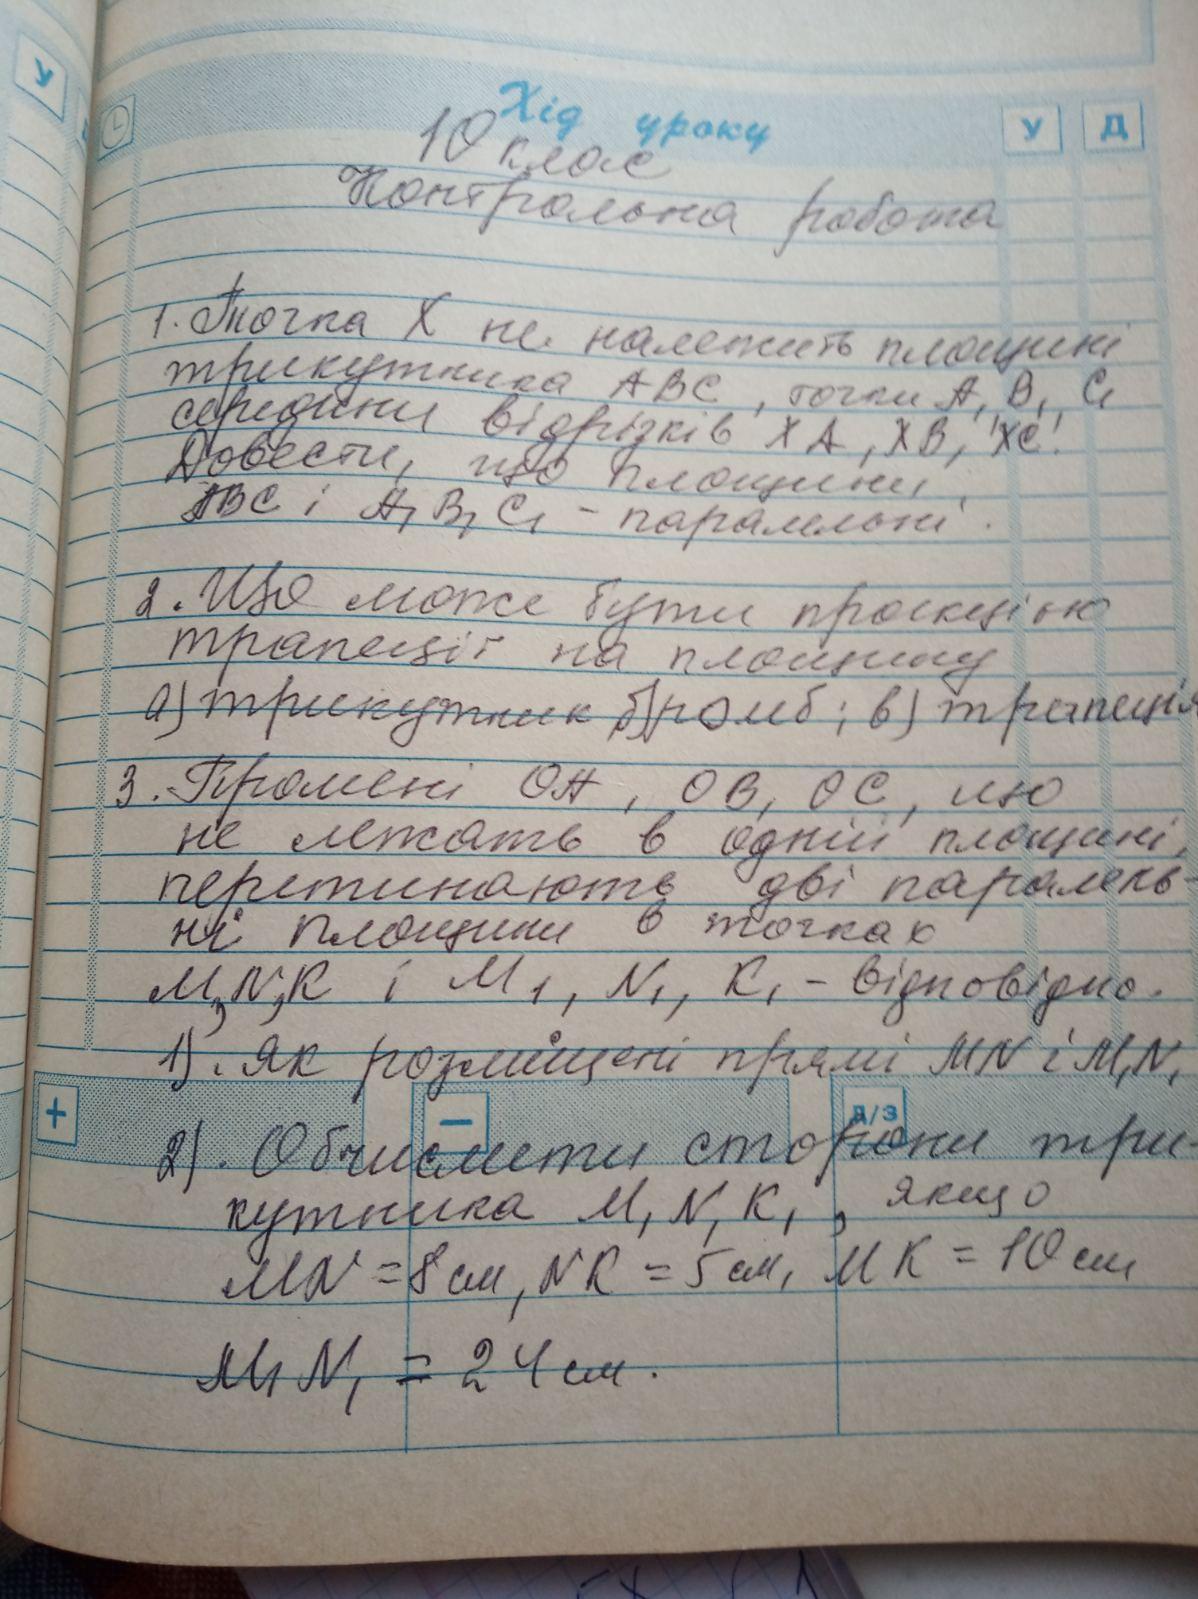 У
Хід уроку
У
Д
10 клас
Контрольна робота
1. Точка X не належить площині
трикутника ABC, точки A₁ B₁ C₁
середини відрізків XA, XB, XC.
Довести, що площини
ABC і A₁ B₁ C₁ - паралельні.
2. Що може бути проекцією
трапеції на площину
а) трикутник б) ромб; в) трапеція
3. Промені OA, OB, OC, що
не лежать в одній площині,
перетинають дві паралель-
ні площини в точках
M, N, K і M₁, N₁, K₁ - відповідно.
1). Як розміщені прямі MN і M₁N₁
+
–
Д/З
2). Обчислити сторони три-
кутника M₁ N₁ K₁, якщо
MN = 8 см, NK = 5 см, MK = 10 см
M₁ N₁ = 24 см.